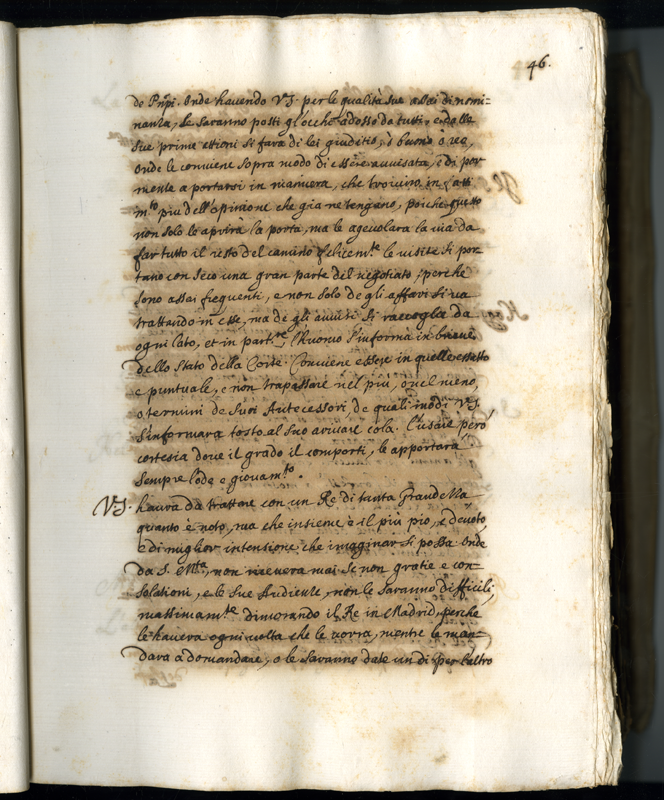 46.
de Pnpi. Onde havendo V.S. per le qualità sue assai di nomi-
nanza, Le saranno posti gl'occhi adosso da tutti, e dalle
sue prime attioni si farà di lei giuditio, ò buono ò reo,
onde le conviene sopra modo di essere avvisata, e di por
mente a portarsi in maniera, che trovino in fatti
m.to più dell'opinione che già ne tengano, poiche questo
non solo le aprirà la porta, ma le agevolara la via da
far tutto il resto del camino felicem.te le visite si por
tano con seco una gran parte del negotiato, perche
sono assai frequenti, e non solo de gli affari si va
trattando in esse, ma de gli avvisi si raccoglie da
ogni lato, et in part.re, l'huomo s'informa in breve
dello stato della Corte. Conviene essere in quelle esatto
e puntuale, e non trapassare nel più, o nel meno,
o termini de suoi Antecessori, de quali modi V.S.
s'informara tosto al suo arrivare colà. l'usare però
cortesia dove il grado il comporti, le apportarà
sempre lode e giovam.to.
V.S. havra da trattare con un Re di tanta Grandezza
quanto è noto, ma che insieme è il più pio, e devoto
e di miglior intensione che imaginar si possa onde
da S. M.tà, non riceverà mai se non gratie e con-
solationi, e le sue Audienze, non le saranno difficili,
massimam.te dimorando il Re in Madrid, perche
le havera ogni volta che le vorra, mentre le man-
dara a domandare, o le saranno date un dì per l'altro